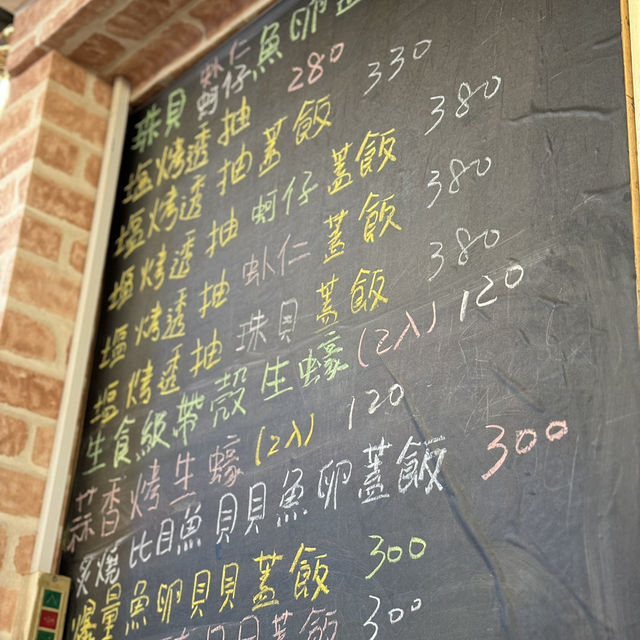 珠貝 虲仁 蚵仔 魚卵蓋
塩烤透抽 280
塩烤透抽蓋飯 330
塩烤透抽蚵仔蓋飯 380
塩烤透抽虲仁蓋飯 380
塩烤透抽珠貝蓋飯 380
生食級帶殼生蠔(2入) 120
蒜香烤生蠔(2入) 120
炙燒比目魚貝貝魚卵蓋飯 300
爆量魚卵貝貝蓋飯 300
蓋飯 300